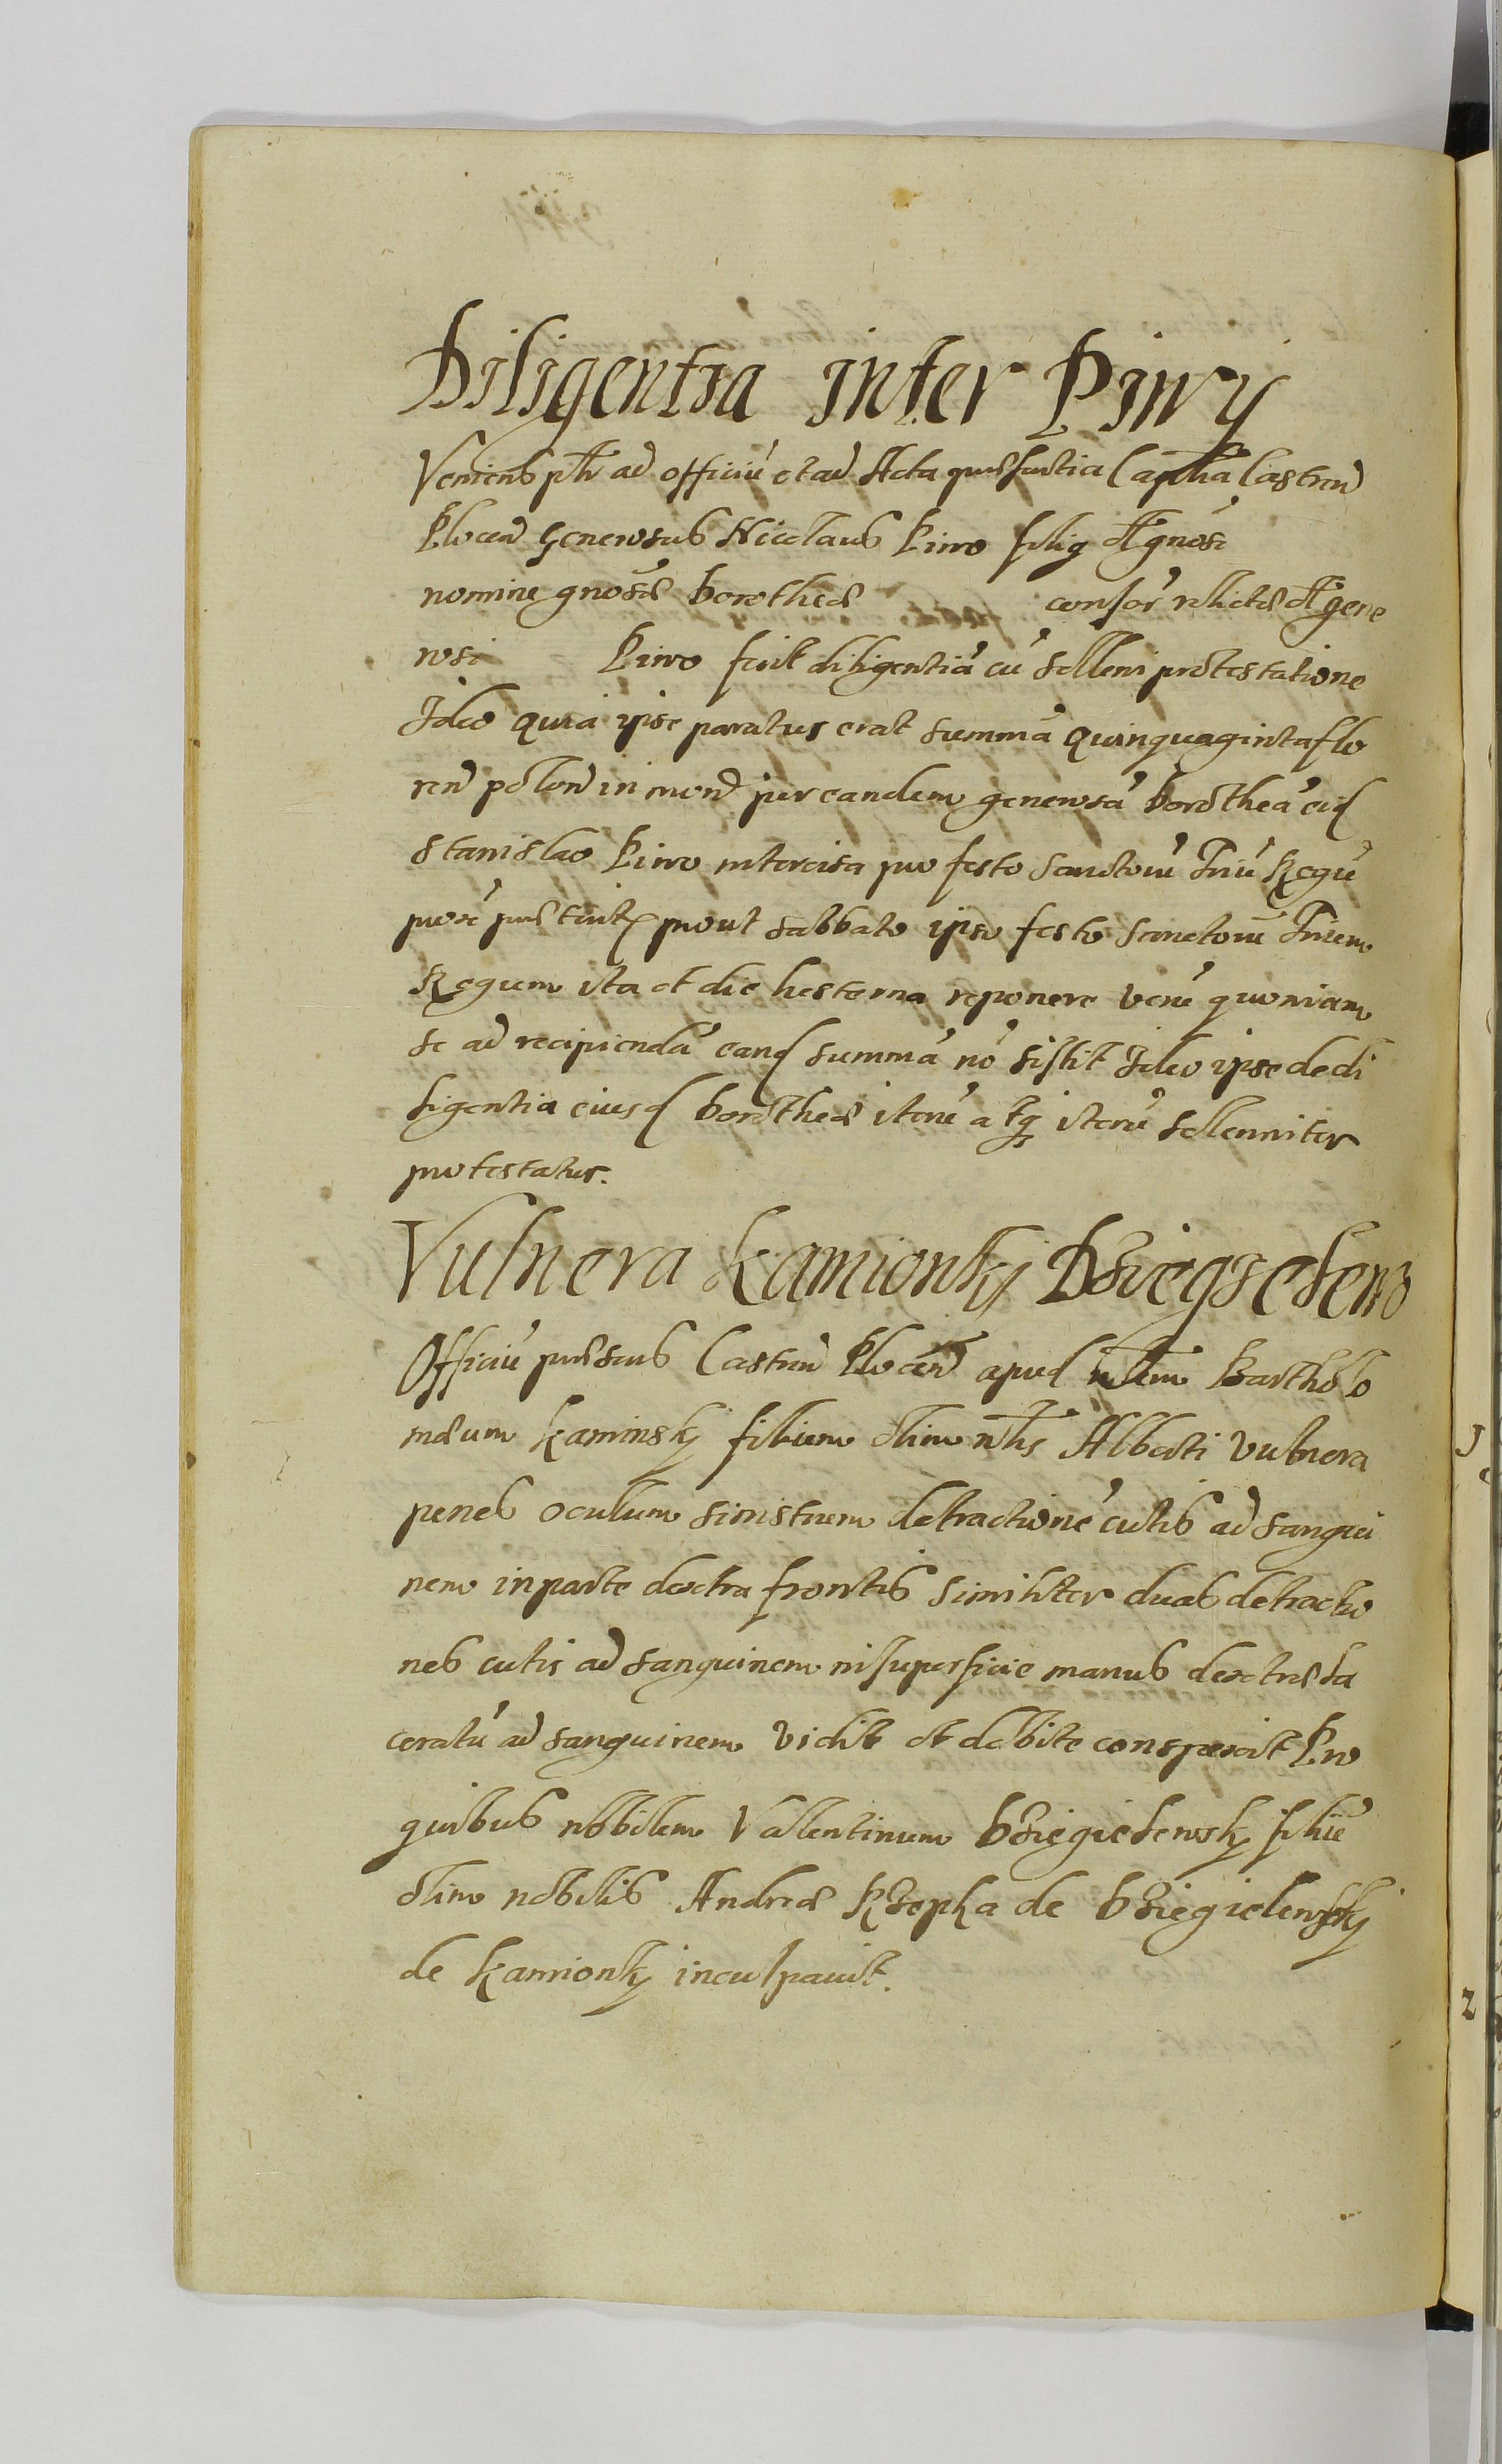 Diligentia inter Piwy
Veniens pltr ad officiũ et ad Acta præsentia Capitlia Castren
Plocen Generosus Nicolaus Piwo filius olĩ gnosi
nomine gnosæ Dorotheæ consor relictæ olĩ gene
rosi Piwo fecit diligentiã cũ sollenni protestatione
Ideo quia ipse paratus erat summã quinquaginta flo
ren polon in mon per eandem generosã Dorotheã eid
Stanislao Piwo pro festo Sanctorũ Triũ Regũ
prout sabbato ipso festo Sanctorũ Trium
Regum ita et die hesterna reponere verũ quoniam
se ad recipiendã eand summã nõ sistit Ideo ipse de di
ligentia eiusd Dorotheæ iterũ atq iterũ sollenniter
protestatur.
Vulnera Kamionky Dziegielew
Officiũ præsens Castren Plocen apud nblem Bartholo
mæum Kaminsky filium olim nblis Alberti vulnera
penes oculum sinistrum detractionẽ cutis ad sangui
nem in parte dextra frontis similiter duas detractio
nes cutis ad sanguinem in superficie manus dextræ la
ceratũ ad sanguinem vidit et debite conspexit Pro
quibus nobilem Valentinum Dziegielewsky filiũ
olim nobilis Andreæ Rzepka de Dziegielewsky
de Kamionky inculpavit.